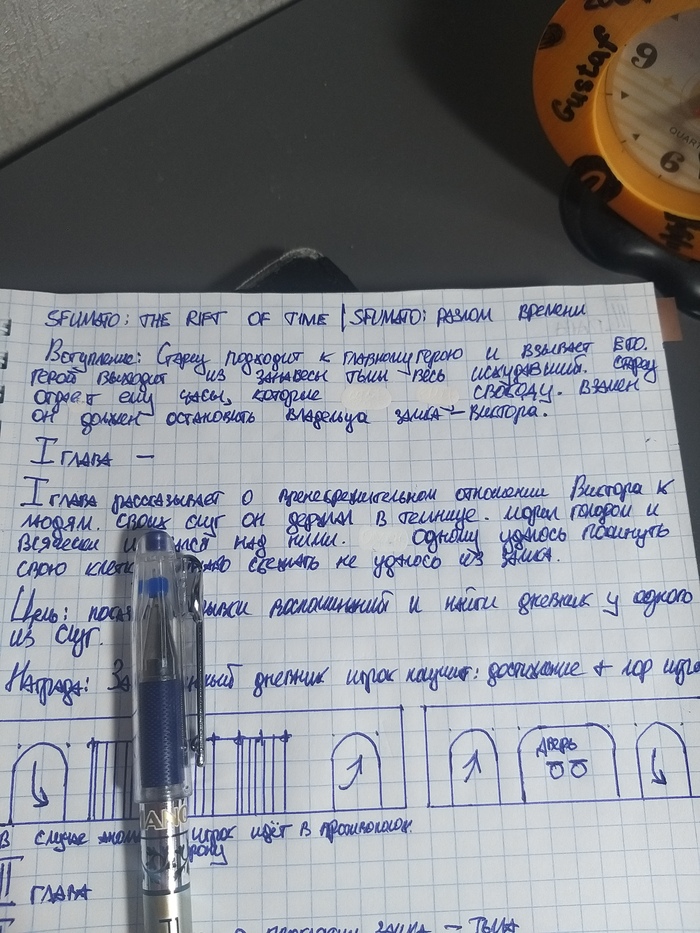 Gustaf
9
6
QUART
SFUMATO: THE RIFT OF TIME | SFUMATO: РАЗЛОМ ВРЕМЕНИ
Вступление: Старец подходит к главному герою и взывает его.
Герой выходит из занавесы тьмы весь исхудавший. Старец
отдаёт ему часы, которые свободу. Взамен
он должен остановить владельца замка – Виктора.
I ГЛАВА —
I глава рассказывает о пренебрежительном отношении Виктора к
людям. Своих слуг он держал в темнице. Морил голодом и
всячески над ними. Одному удалось покинуть
свою сбежать не удалось из замка.
Цель: воспоминаний и найти дневник у одного
из слуг.
Награда: дневник игрок получит: достижение + лор игры
ДВЕРЬ
В случае игрок идёт в противополож.
II ГЛАВА
замка – Тьма